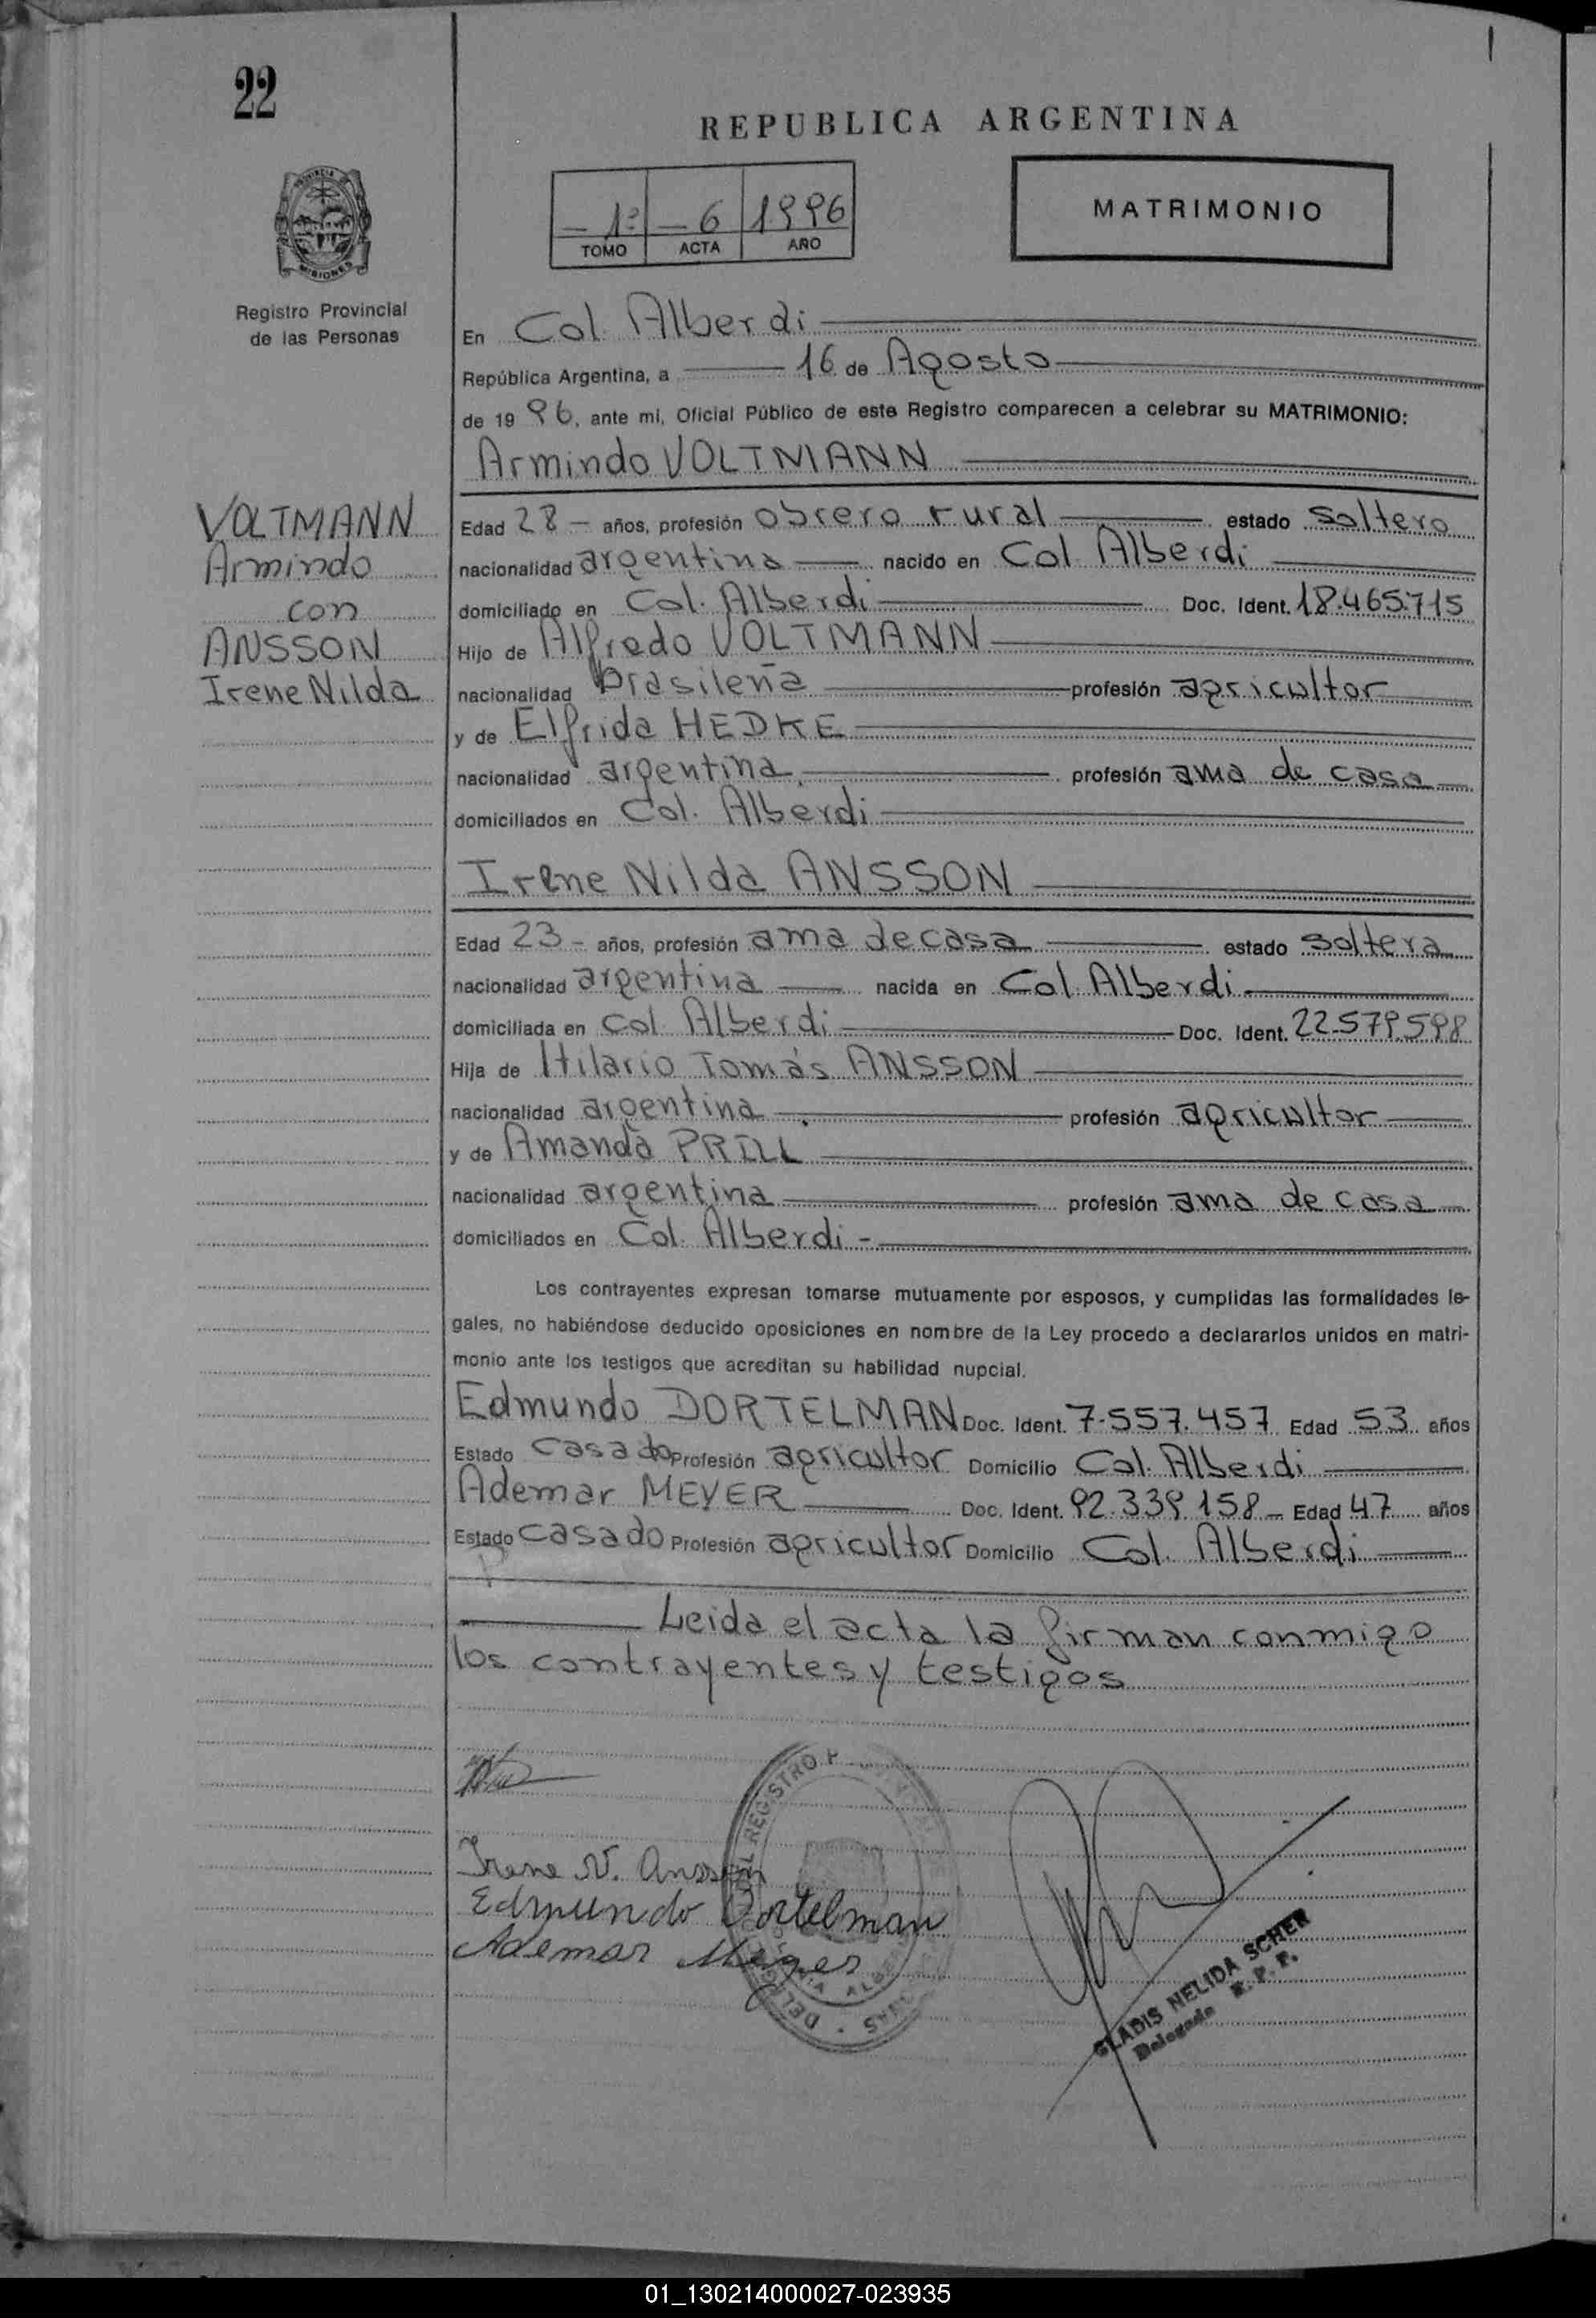 22
REPUBLICA ARGENTINA
- 1º - 6 1996
TOMO ACTA AÑO
MATRIMONIO
PROVINCIA DE
MISIONES
Registro Provincial
de las Personas
En Col. Alberdi
República Argentina, a 16 de Agosto
de 19 96, ante mi, Oficial Público de este Registro comparecen a celebrar su MATRIMONIO:
Armindo VOLTMANN
VOLTMANN
Armindo
con
ANSSON
Irene Nilda
Edad 28 - años, profesión obrero rural estado soltero
nacionalidad argentina nacido en Col. Alberdi
domiciliado en Col. Alberdi Doc. Ident. 18.465.715
Hijo de Alfredo VOLTMANN
nacionalidad brasileña profesión agricultor
y de Elfrida HEDKE
nacionalidad argentina profesión ama de casa
domiciliados en Col. Alberdi
Irene Nilda ANSSON
Edad 23 - años, profesión ama de casa estado soltera
nacionalidad argentina nacida en Col. Alberdi
domiciliada en Col. Alberdi Doc. Ident. 22.579.598
Hija de Hilario Tomás ANSSON
nacionalidad argentina profesión agricultor
y de Amanda PRILL
nacionalidad argentina profesión ama de casa
domiciliados en Col. Alberdi -
Los contrayentes expresan tomarse mutuamente por esposos, y cumplidas las formalidades le-
gales, no habiéndose deducido oposiciones en nombre de la Ley procedo a declararlos unidos en matri-
monio ante los testigos que acreditan su habilidad nupcial.
Edmundo DORTELMAN Doc. Ident. 7.557.457 Edad 53 años
Estado casado Profesión agricultor Domicilio Col. Alberdi
Ademar MEYER Doc. Ident. 92.339.158 - Edad 47 años
Estado casado Profesión agricultor Domicilio Col. Alberdi
Leida el acta la firman conmigo
los contrayentes y testigos
Irene N. Ansson
Edmundo Dortelman
Ademar Meyer
REGISTRO
GLADIS NELIDA SCHER
Delegada R. P. P.
01_130214000027-023935